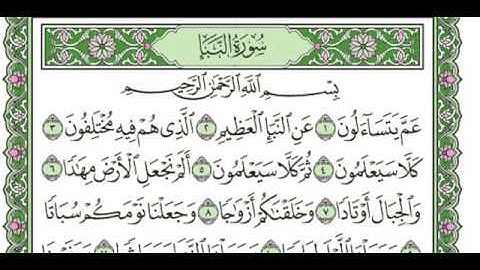 سُورَةُ النَّبَإِ
بِسْمِ اللَّهِ الرَّحْمَٰنِ الرَّحِيمِ
عَمَّ يَتَسَآءَلُونَ ١ عَنِ النَّبَإِ الْعَظِيمِ ٢ الَّذِي هُمْ فِيهِ مُخْتَلِفُونَ ٣
كَلَّا سَيَعْلَمُونَ ٤ ثُمَّ كَلَّا سَيَعْلَمُونَ ٥ أَلَمْ نَجْعَلِ الْأَرْضَ مِهَٰدًا ٦
وَالْجِبَالَ أَوْتَادًا ٧ وَخَلَقْنَٰكُمْ أَزْوَٰجًا ٨ وَجَعَلْنَا نَوْمَكُمْ سُبَاتًا